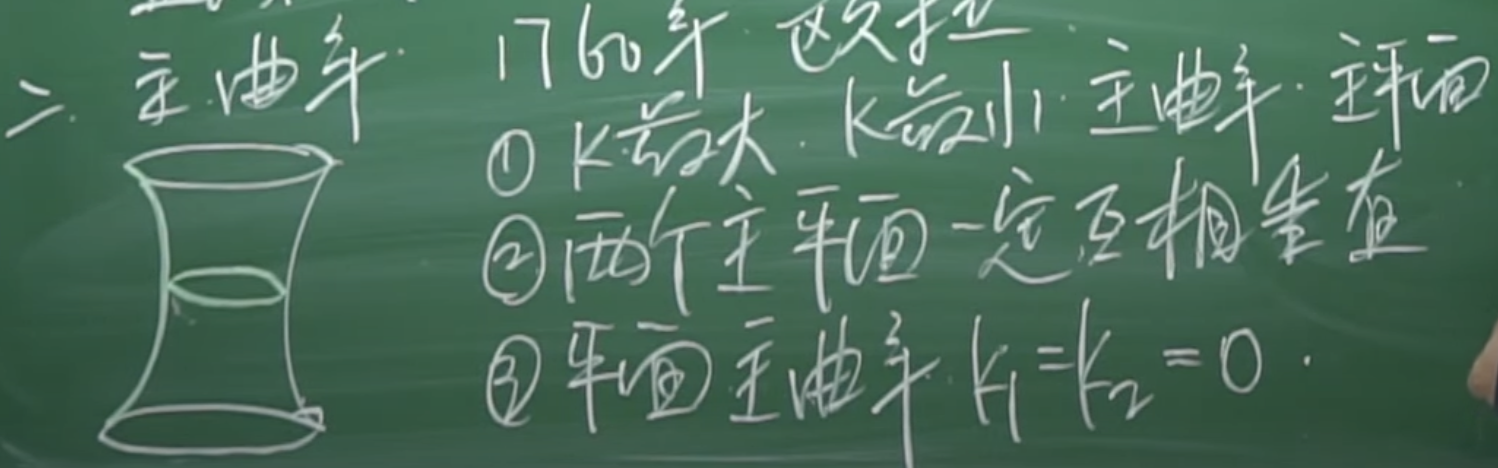 二. 主曲率. 1760年. 欧拉.
① K最大. K最小. 主曲率. 主平面
② 两个主平面一定互相垂直
③ 平面主曲率 k₁=k₂=0.